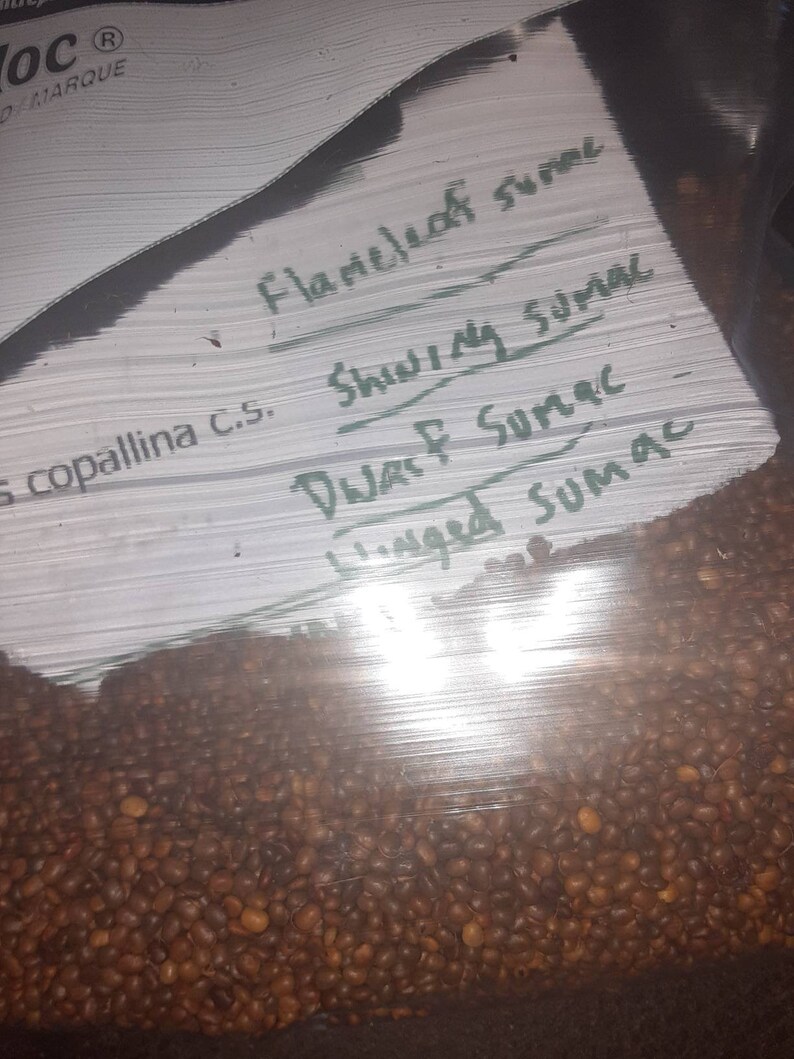 loc ®
D / MARQUE
Flameleaf sumac
Shining sumac
s copallina c.s.
Dwarf sumac
Winged sumac